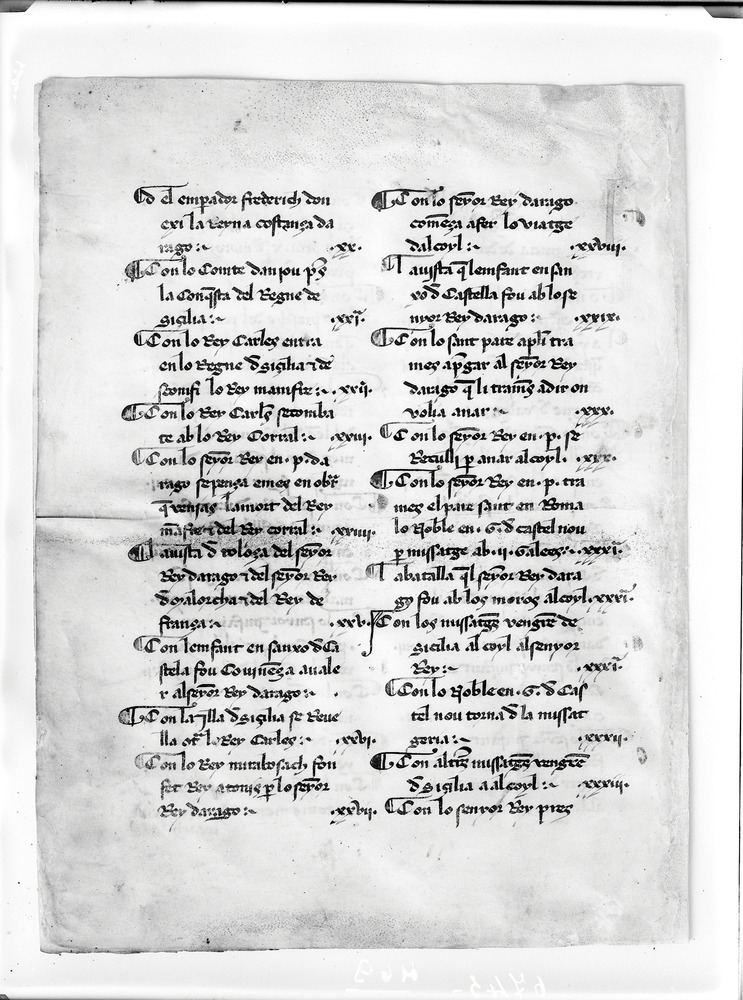 D el emp̄ador frederich don
exi la Reyna costança da
rago :~ .xx.
¶ Con lo Comte daniou ps̄
la Conq̄sta del Regne de
Sicilia :~ .xxi.
¶ Con lo Rey Carles entra
en lo Regne d̄ Sicilia ⁊ de
sconfi lo Rey manifre :~ .xxii.
¶ Con lo Rey Carls̄ se comba
te ab lo Rey Corral :~ .xxiii.
¶ Con lo seyor Rey en .p. da
rago se pensa
q̄ venjas la mort del Rey
māfre ⁊ del Rey corral :~ .xxiiii.
¶ La vista d̄ tolosa del seyor
Rey darago ⁊ del seyor Rey
d̄ Malorcha ⁊ del Rey de
frança :~ .xxv.
¶ Con lemfant en sanxo d̄ Ca
stela fou
r al seyor Rey darago :~ .
¶ Con la ylla d̄ Sicilia se Reve
lla lo Rey Carles :~ .xxvi.
¶ Con lo Rey mirabosach fou
fet Rey p̄ lo seyor
Rey darago :~ .xxvii.
¶ Con lo seyor Rey darago
comēsa a fer lo viatge
dalcoyl :~ .xxviii.
¶ La vista q̄ lemfant en san
xo d̄ Castella fou ab lo se
nyor Rey darago :~ .xxix.
¶ Con lo sant pare apl̄i tra
mes ap̄gar al seyor Rey
darago q̄ li trames a dir on
volia anar :~ .xxx.
¶ Con lo seyor Rey en .p. se
Recull p̄ anar alcoyl . .xxx.
¶ Con lo seyor Rey en .p. tra
mes el pare sant en Roma
lo Noble en .G. d̄ castel nou
p̄ missatge ab .ii. Galees :~ .xxxi.
¶ La batalla q̄l seyor Rey dara
go fou ab los moros alcoyl .xxxi.
¶ Con los missatgs̄ vengrē de
Sicilia al coyl al senyor
Rey :~ .xxxi.
¶ Con lo Noble en .G. d̄ Cas
tel nou torna d̄ la missat
geria :~ .xxxii.
¶ Con altrs̄ missatgs̄ vengrē
d̄ Sicilia a alcoyl :~ .xxxiii.
¶ Con lo senyor Rey pres